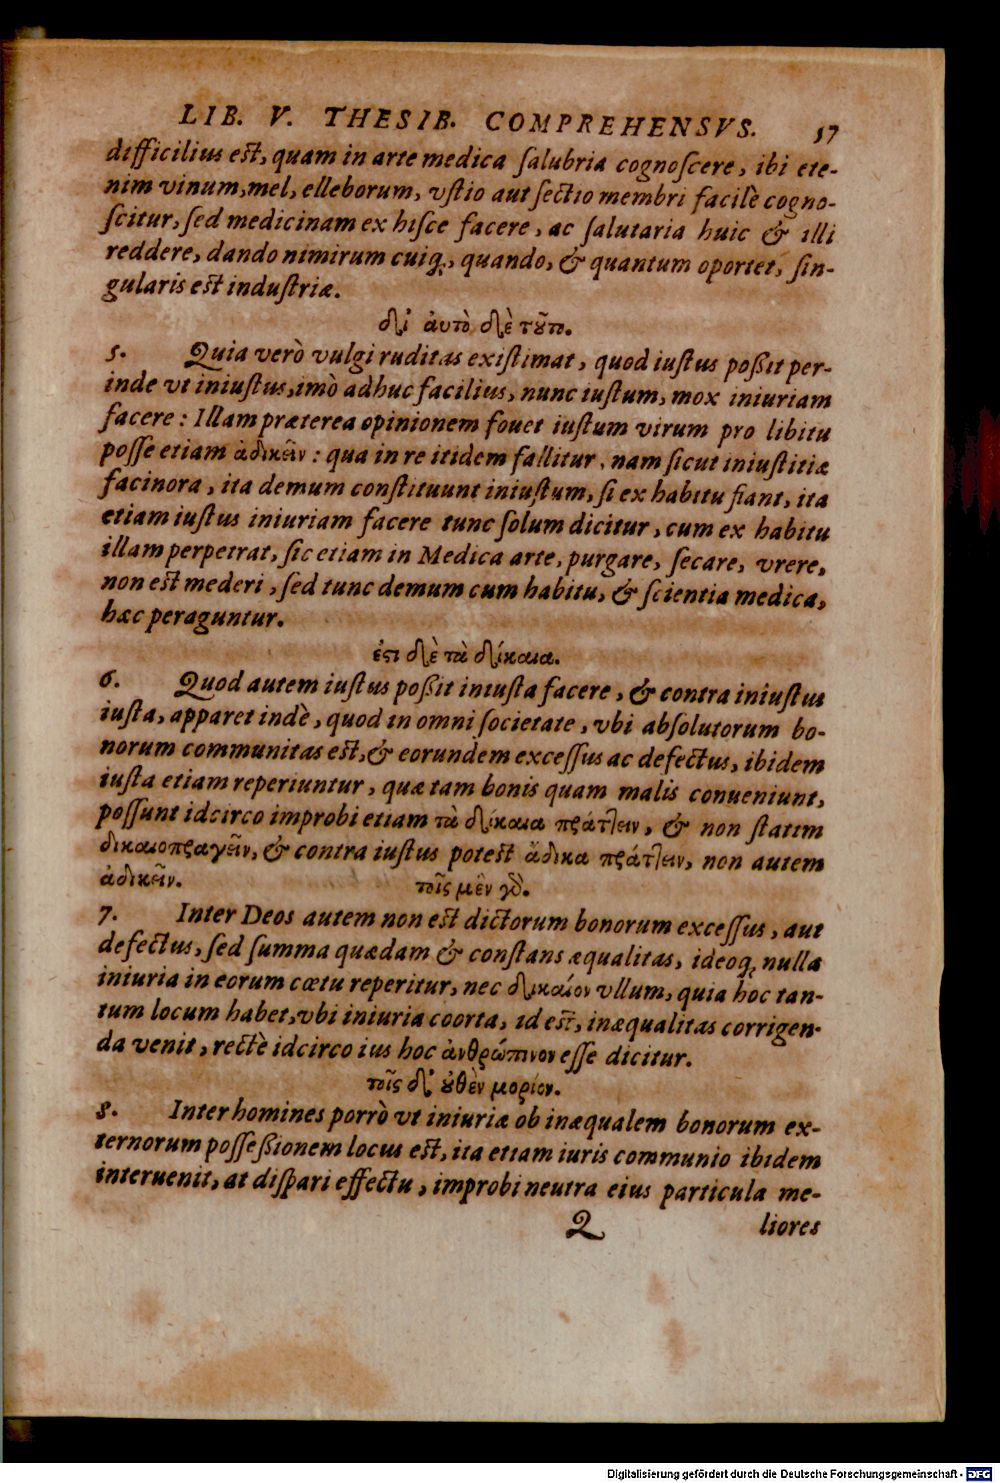 LIB. V. THESIB. COMPREHENSVS. 57
difficilius est, quam in arte medica salubria cognoscere, ibi ete-
nim vinum, mel, elleborum, vstio aut sectio membri facilè cogno-
scitur, sed medicinam ex hisce facere, ac salutaria huic & illi
reddere, dando nimirum cuiq;, quando, & quantum oportet, sin-
gularis est industriæ.
δι' αυτὸ δὲ τȣ̃το.
5. Quia verò vulgi ruditas existimat, quod iustus poßit per-
inde vt iniustus, imò adhuc facilius, nunc iustum, mox iniuriam
facere: Illam præterea opinionem fouet iustum virum pro libitu
posse etiam ἀδικεῖν: qua in re itidem fallitur, nam sicut iniustitiæ
facinora, ita demum constituunt iniustum, si ex habitu fiant, ita
etiam iustus iniuriam facere tunc solum dicitur, cum ex habitu
illam perpetrat, sic etiam in Medica arte, purgare, secare, vrere,
non est mederi, sed tunc demum cum habitu, & scientia medica,
hæc peraguntur.
ἐϛι δὲ τὰ δίκαια.
6. Quod autem iustus poßit iniusta facere, & contra iniustus
iusta, apparet indè, quod in omni societate, vbi absolutorum bo-
norum communitas est, & eorundem excessus ac defectus, ibidem
iusta etiam reperiuntur, quæ tam bonis quam malis conueniunt,
possunt idcirco improbi etiam τὰ δίκαια πράτ͡τειν, & non statim
δικαιοπραγεῖν, & contra iustus potest ἄδικα πράτ͡τειν, non autem
ἀδικεῖν. τοῖς μὲν γὸ.
7. Inter Deos autem non est dictorum bonorum excessus, aut
defectus, sed summa quædam & constans æqualitas, ideoq; nulla
iniuria in eorum cœtu reperitur, nec δικαίον vllum, quia hoc tan-
tum locum habet, vbi iniuria coorta, id est, inæqualitas corrigen-
da venit, rectè idcirco ius hoc ἀνθρώπινον esse dicitur.
τοῖς δ' ȣθὲν μορίον.
8. Inter homines porrò vt iniuriæ ob inæqualem bonorum ex-
ternorum possessionem locus est, ita etiam iuris communio ibidem
interuenit, at dispari effectu, improbi neutra eius particula me-
Q liores
Digitalisierung gefördert durch die Deutsche Forschungsgemeinschaft - DFG